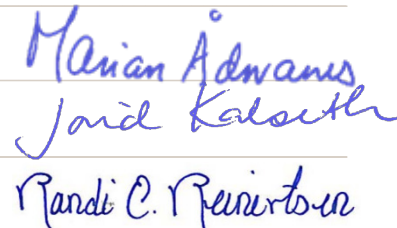 Marian Ådnanes
Jorid Kalseth
Randi C. Reinertsen